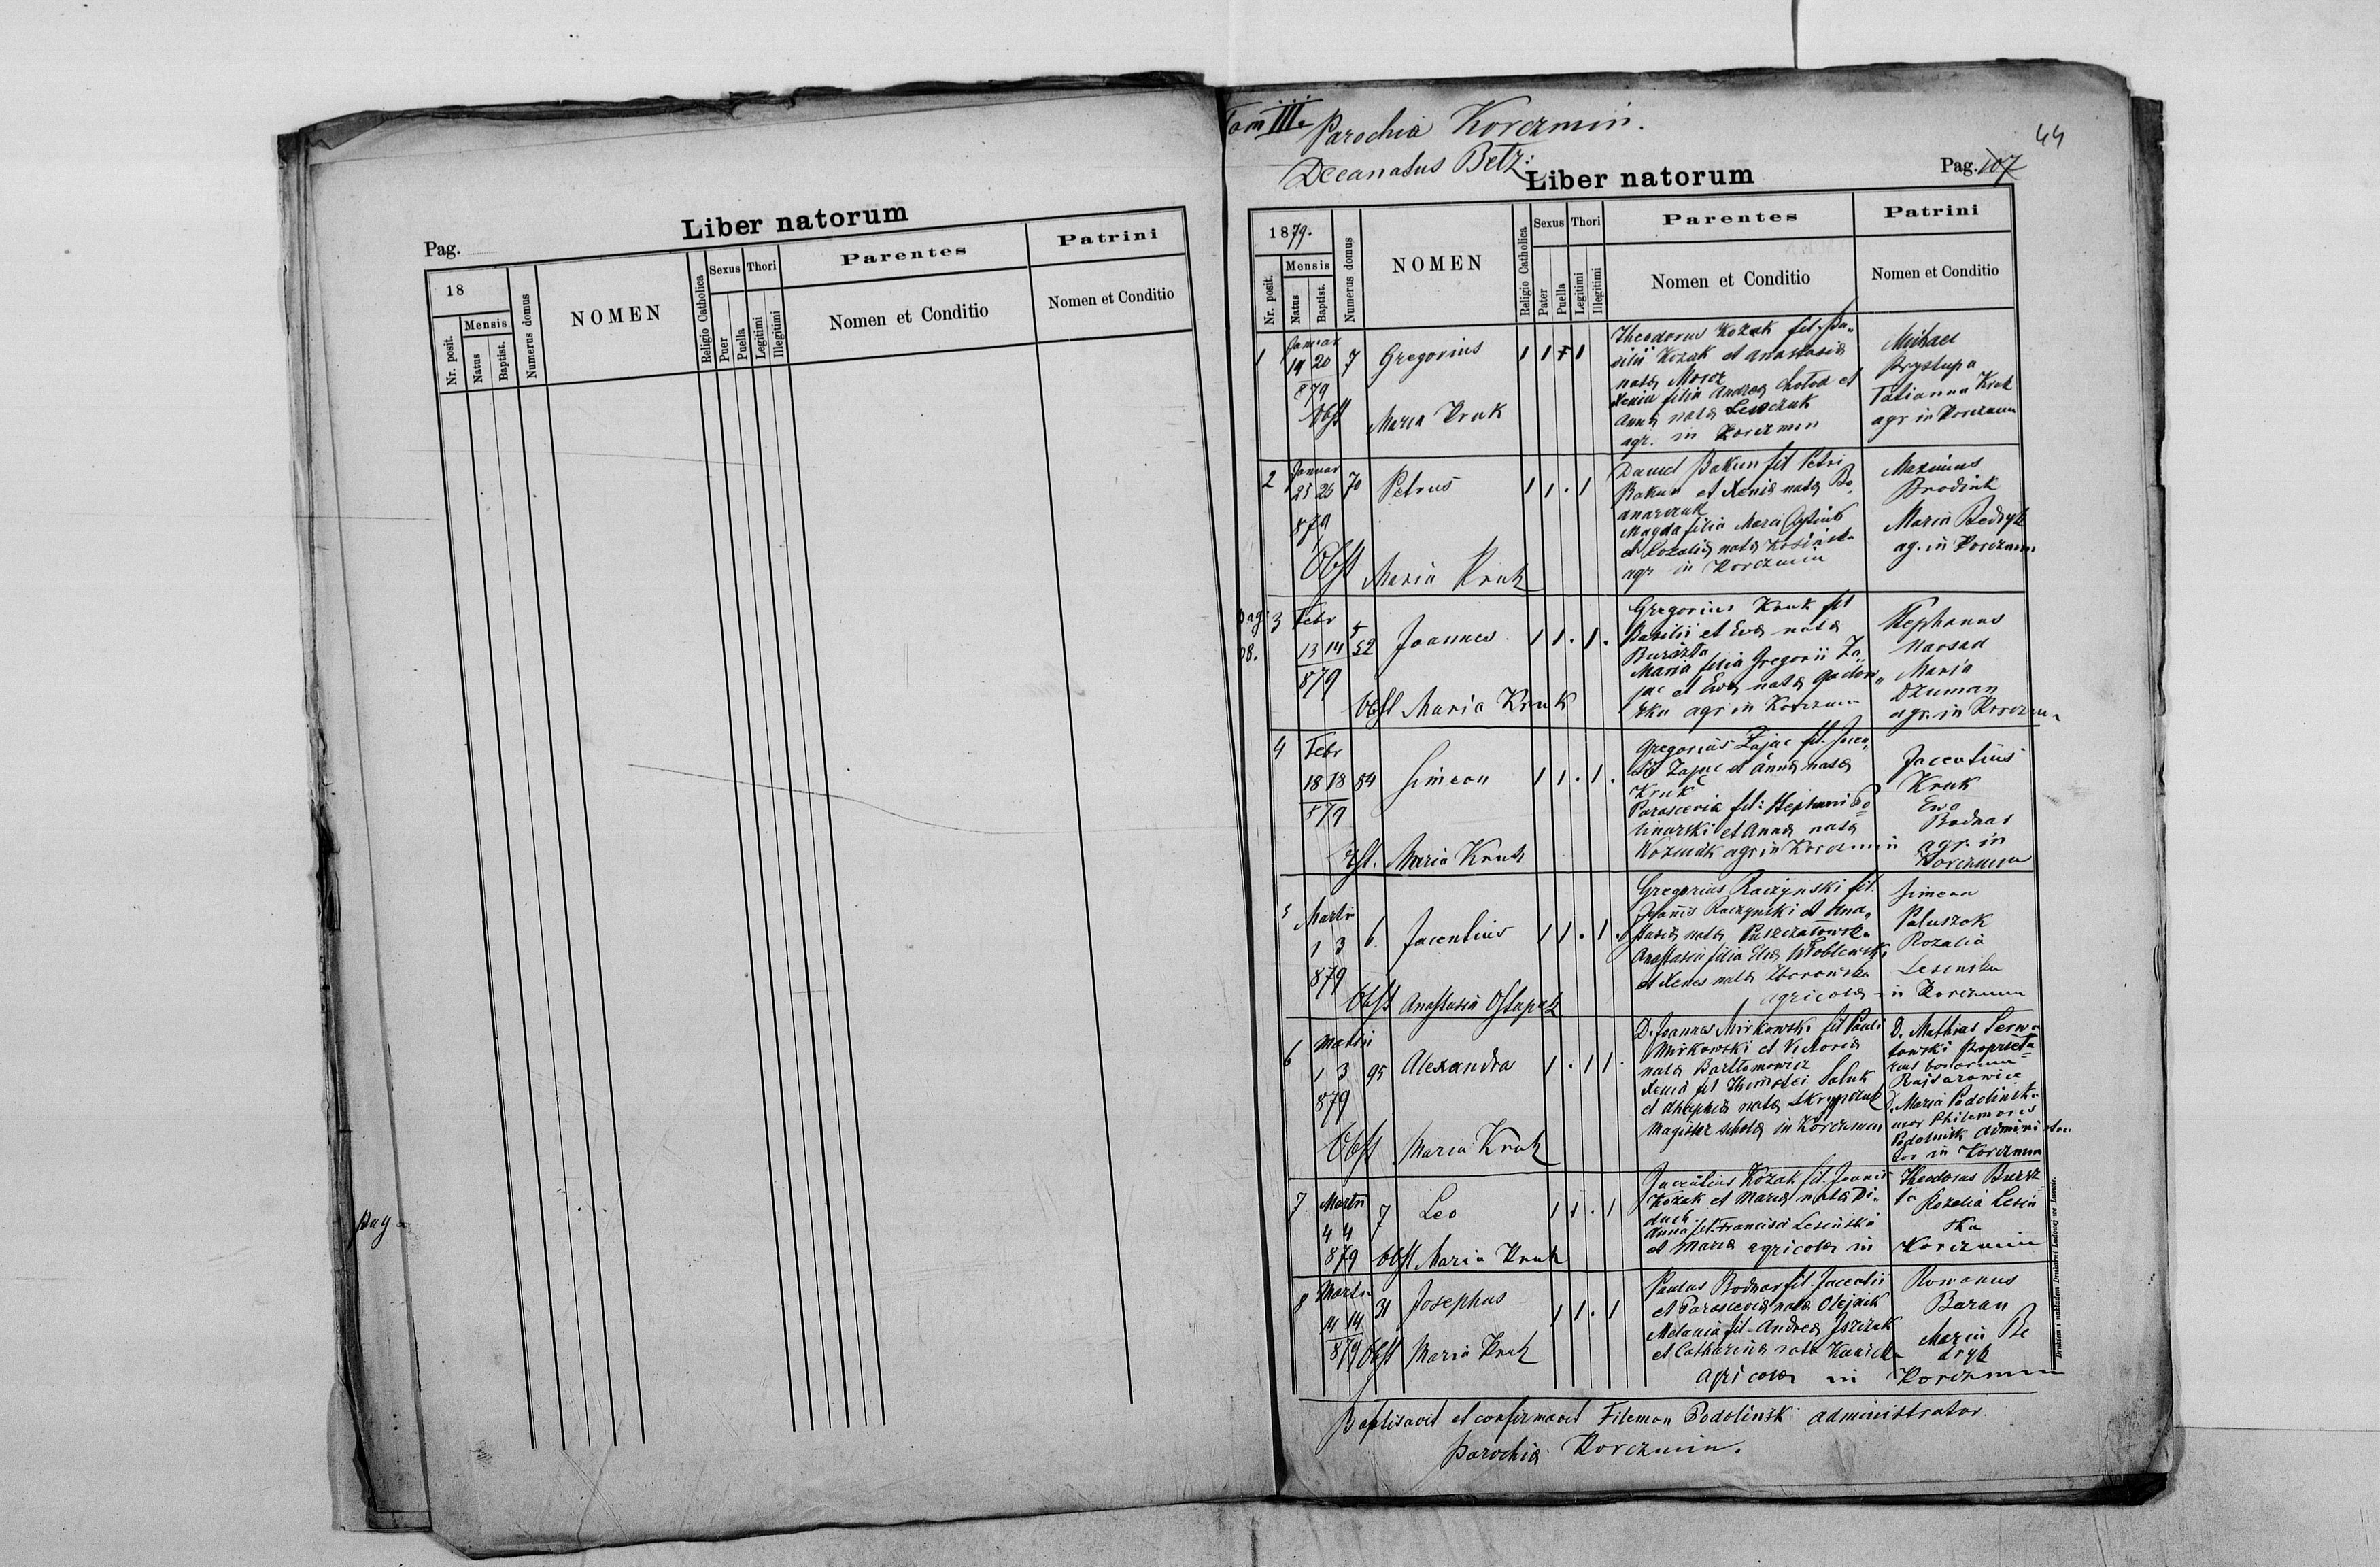 Liber natorum
Pag.
18
Mensis
Nr. posit.
Natus
Baptist.
Numerus domus
NOMEN
Religio Catholica
Sexus
Puer
Puella
Thori
Legitimi
Illegitimi
Parentes
Nomen et Conditio
Patrini
Nomen et Conditio
pag
Tom III. Parochia Korczmin.
Decanatus Betz:
44
Liber natorum
Pag. 107
1879.
Mensis
Nr. posit.
Natus
Baptist.
Numerus domus
NOMEN
Religio Catholica
Sexus
Pater
Puella
Thori
Legitimi
Illegitimi
Parentes
Nomen et Conditio
Patrini
Nomen et Conditio
1
Januar
19 20
879
7
Gregorius
1 1 1
Obst Maria Kruk
Theodorus Kozak fil. Ba„
silii Kozak et Anastasia
nata Moroz
Xenia filia Andrea et
Anna nata Lewczuk
agr. in Korczmin
Michael
Prystupa
Tatianna Kruk
agr in Korczmin
2
Januar
25 26
879
70
Petrus
1 1 . 1
Obst Maria Kruk
Daniel Bakun fil Petri
Bakun et Xenia nata Bo„
Magda filia Marci
et Rozalia nata
agr in Korczmin
Maximus
Brodiuk
Maria Bedryk
ag. in Korczmin
pag
08.
3
Febr
13 14
879
5
52
Joannes
1 1 . 1 .
Obst Maria Kruk
Gregorius Kruk fil
Basilii et Eva nata
Burszta
Maria filia Gregorii Za„
jac et Eva nata
agr in Korczmin
Stephanus
Maria
Dzuman
agr. in Korczmin
4
Febr
18 18
879
84
Simeon
1 1 . 1 .
Obst. Maria Kruk
Gregorius Zajac fil.
Zajac et Anna nata
Kruk
Parascevia fil: Stephani
et Anna nata
Wozniak agr in Korczmin
Jacentius
Kruk
Ewa
Bodnar
agr. in
Korczmin
5
Martii
1 3
879
6.
Jacentius
1 1 . 1 .
Obst Anastasia Ostapuk
Gregorius Raczynski fil.
Joannis Raczynski et Ana„
stasia nata
Anastasia filia
et nata
agricola in Korczmin
Simeon
Paluszok
Rozalia
Lesinska
6
Martii
1 3
879
95
Alexandra
1 . 1 1 .
Obst Maria Kruk
D. Joannes Mirkowski fil Pauli
Mirkowski et Victoria
nata Bartlomowicz
Xenia fil Thimotei Saluk
et nata
Magister schola in Korczmin
D. Mathias Serwa
towski Proprieta
rius bonorum
D. Maria Podolinska
uxor Philemonis
Podolinsk administra
tor in Korczmin
7
Martii
4 4
879
7
Leo
1 1 . 1
Obst Maria Kruk
Jacentius Kozak fil. Joannis
Kozak et Maria nata Di„
duch.
Anna fil. Francisci Lesinski
et Maria agricola in
Theodorus Bursz
ta Rozalia Lesin
ska
Korczmin
8
Martii
14 14
879
31
Josephus
1 1 . 1
Obst Maria Kruk
Paulus Bodnar fil. Jacentii
et Parascevia nata Olejnik
Melania fil. Andrea
et Catharina nata
agricola in Korczmin
Romanus
Baran
Maria Be
dryk
Baptisavit et confirmavit Filemon Podolinski administrator
parochia Korczmin.
Drukiem i nakładem Drukarni Ludowej we Lwowie.